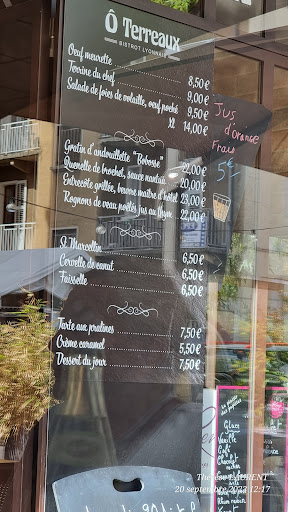 Ô Terreaux
BISTROT LYONNAIS
Oeuf meurette 8,50 €
Terrine du chef 9,00 €
Salade de foies de volaille, oeuf poché 9,50 €
XL 14,00 €
Gratin d'andouillette "Bobosse" 22,00 €
Quenelle de brochet, sauce nantua 20,00 €
Entrecôte grillée, beurre maître d'hôtel 23,00 €
Rognons de veau poêlés jus au thym 22,00 €
St Marcellin 6,50 €
Cervelle de canut 6,50 €
Faisselle 6,50 €
Tarte aux pralines 7,50 €
Crème caramel 5,50 €
Dessert du jour 7,50 €
Jus
d'orange
Frais
5€
Glace
Vanille
Café
Chocolat
LAURENT
20 septembre 2023 12:17